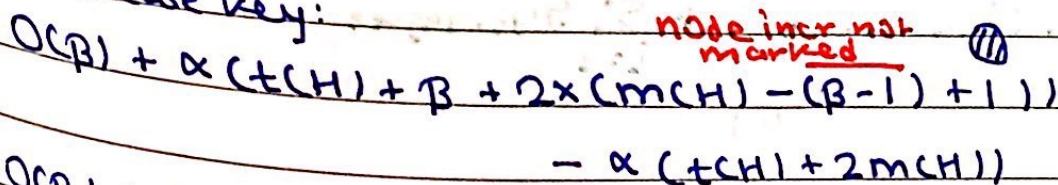 key:
node incr not
marked
O(β) + α(t(H) + β + 2×(m(H) - (β-1) + 1))
- α(t(H) + 2m(H))